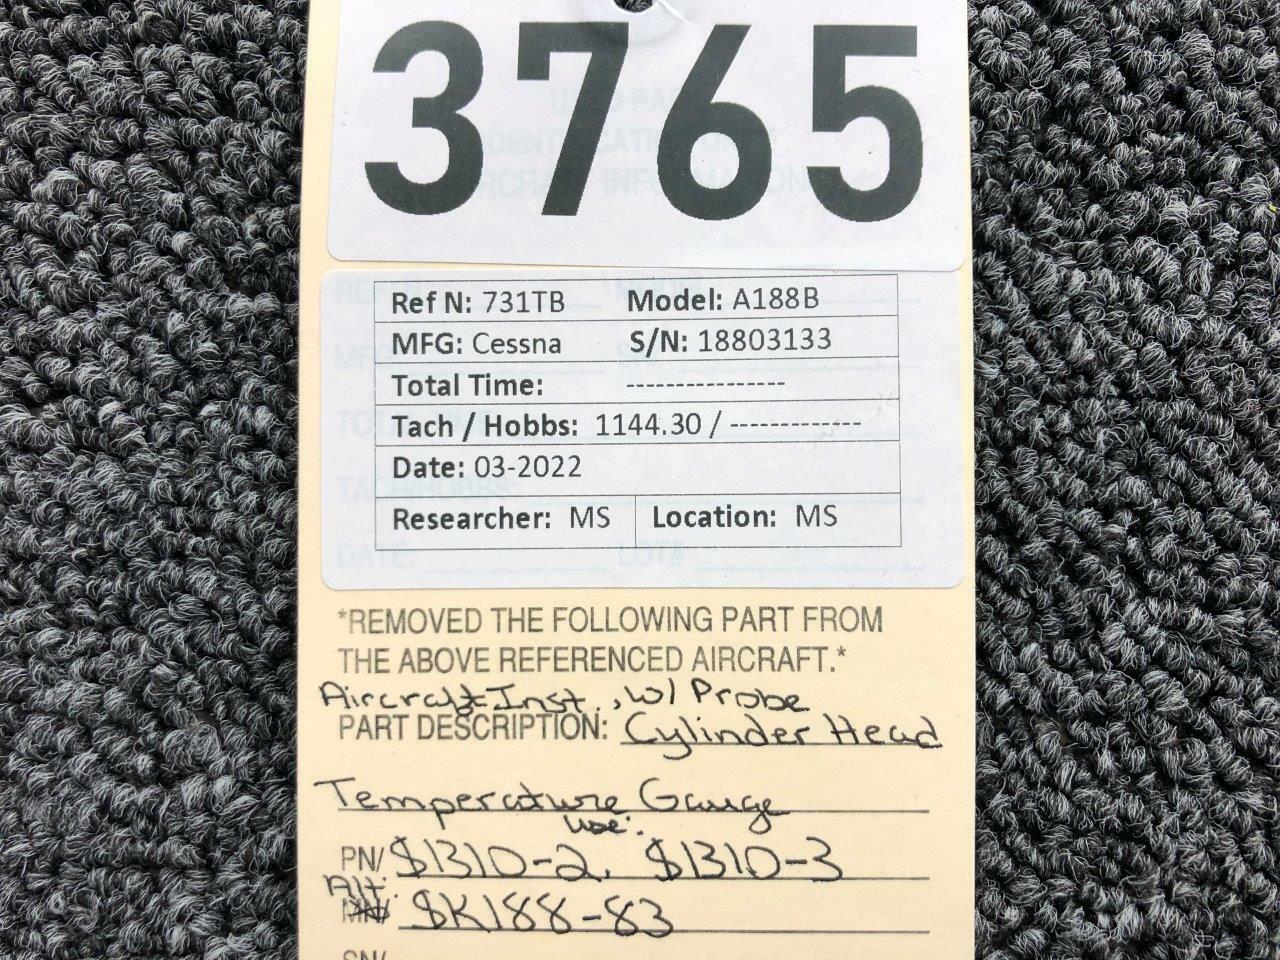 3765
Ref N: 731TB Model: A188B
MFG: Cessna S/N: 18803133
Total Time: ----------------
Tach / Hobbs: 1144.30 / -------------
Date: 03-2022
Researcher: MS Location: MS
DATE: LOT#
*REMOVED THE FOLLOWING PART FROM
THE ABOVE REFERENCED AIRCRAFT.*
Aircraft Inst., w/ Probe
PART DESCRIPTION: Cylinder Head
Temperature Gauge
use:
PN/ S1310-2, S1310-3
Alt:
MN/ SK188-83
SN/